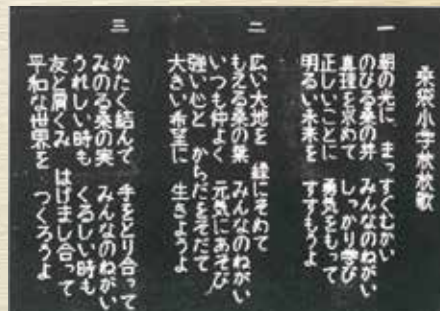 桑袋小学校校歌
一
朝の光に　まっすぐむかい
のびる桑の芽　みんなのねがい
真理を求めて　しっかり学び
正しいことに　勇気をもって
明るい未来を　すすもうよ
二
広い大地を　緑にそめて
もえる桑の葉　みんなのねがい
いつも仲よく　元気にあそび
強い心と　からだをそだて
大きい希望に　生きようよ
三
かたく結んで　手をとり合って
みのる桑の実　みんなのねがい
うれしい時も　くるしい時も
友と肩くみ　はげまし合って
平和な世界を　つくろうよ